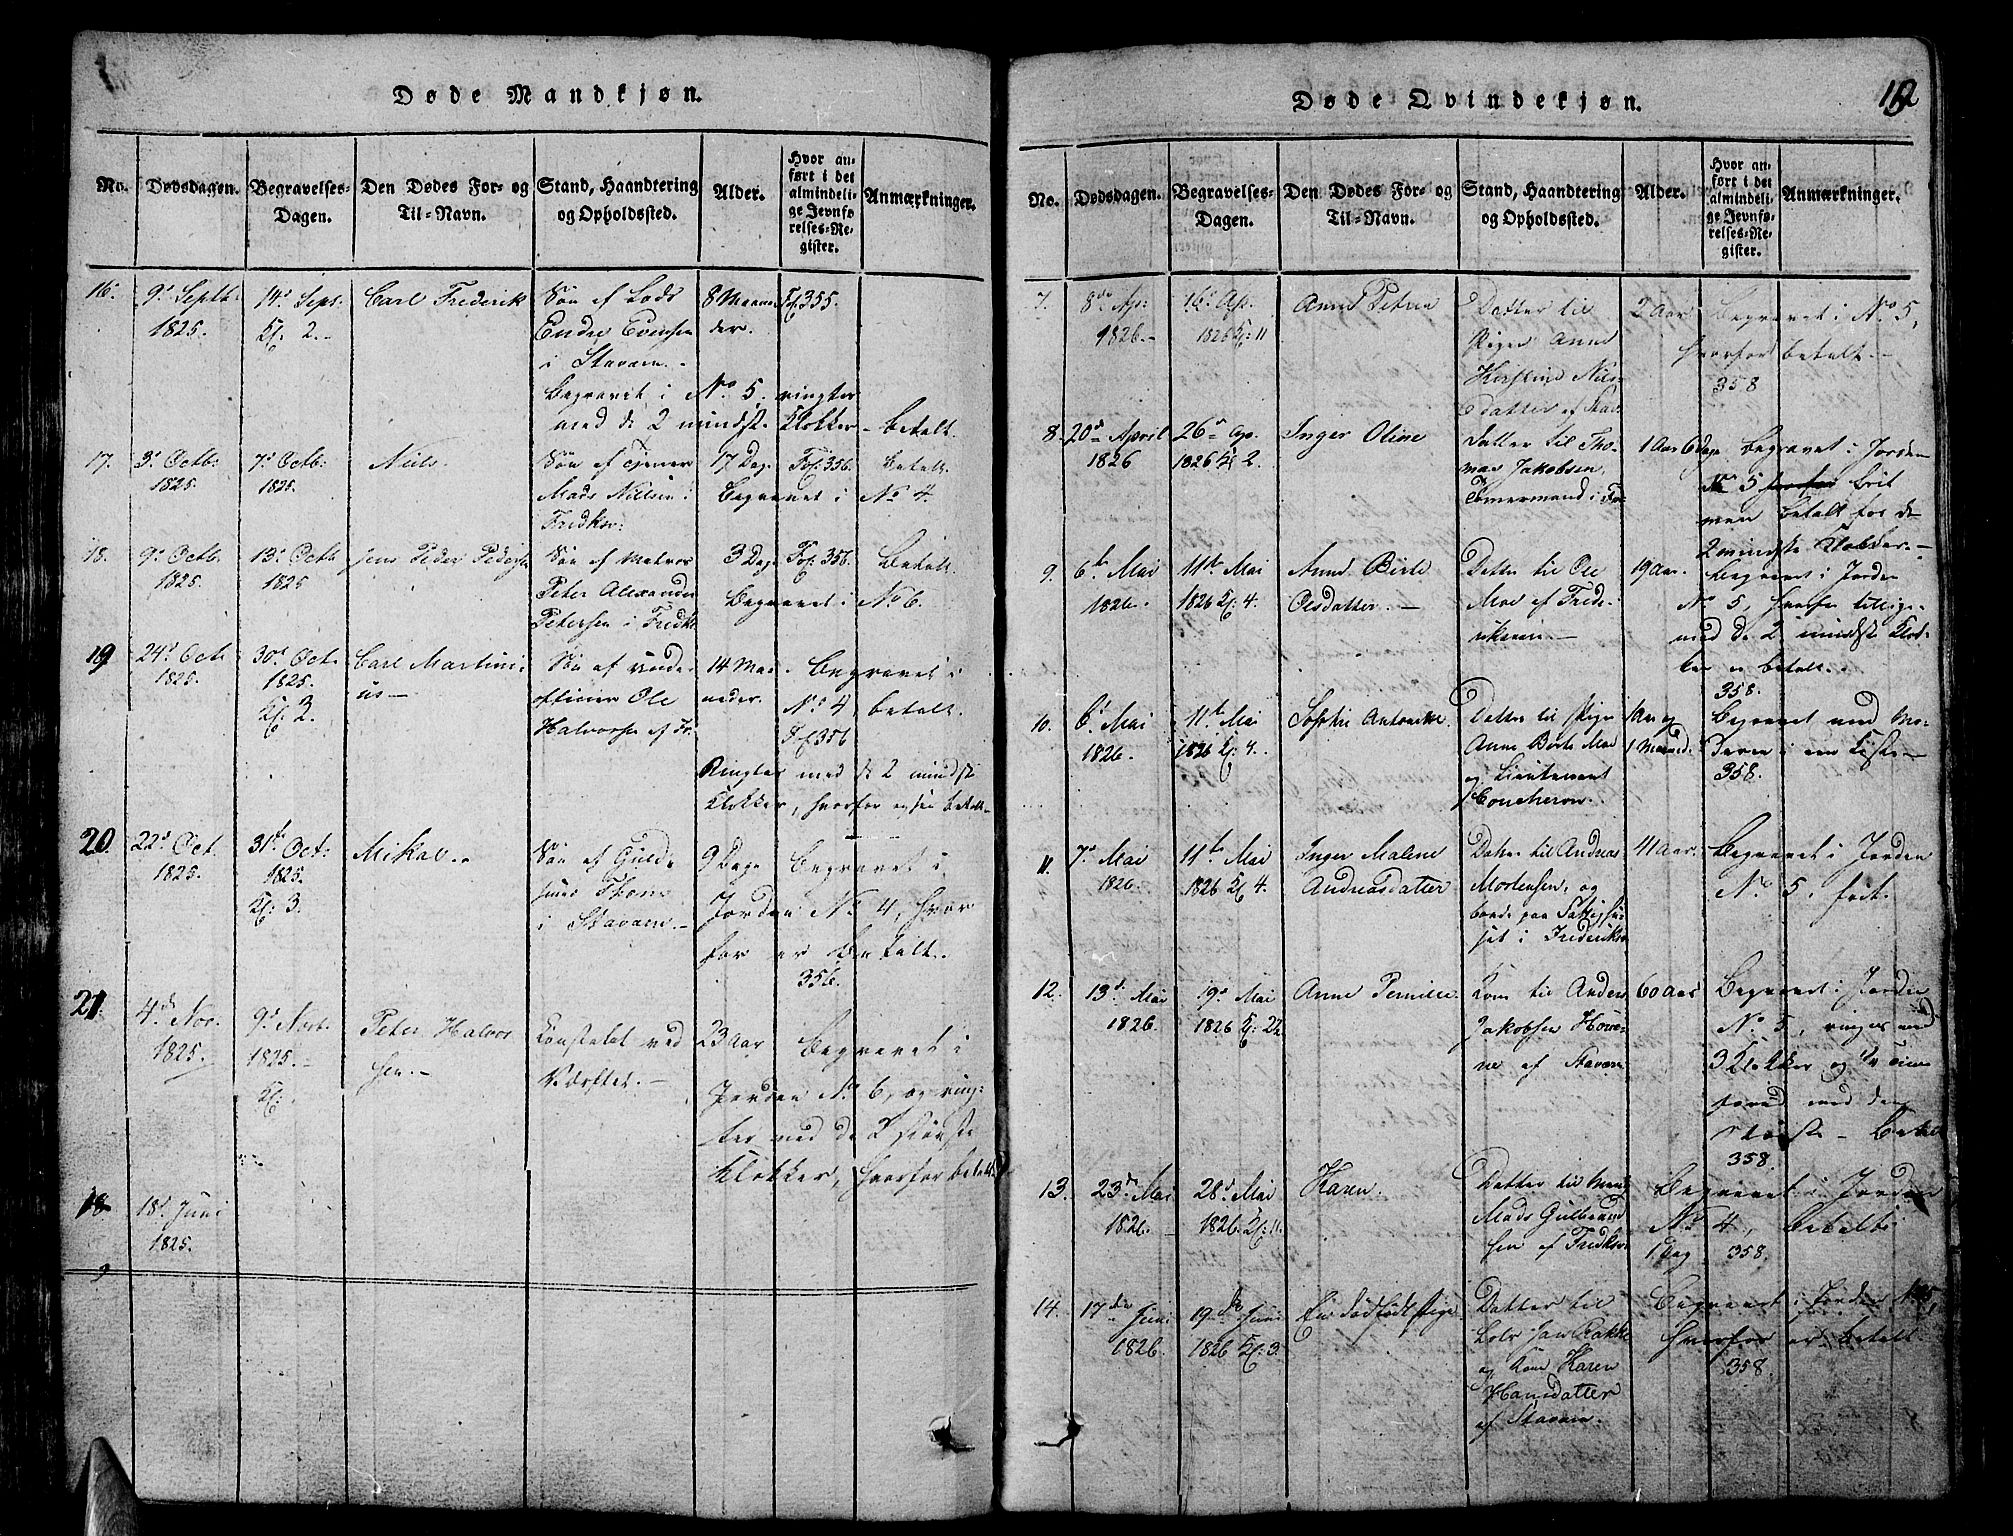 Døde Mandkjøn.
No.
Dødsdagen.
Begravelses-
Dagen.
Den Dødes For- og
Til-Navn.
Stand, Haandtering
og Opholdssted.
Alder.
Hvor an-
ført i det
almindeli-
ge Jevnfø-
relses-Re-
gister.
Anmærkninger.
16.
9d Septbr
1825.
14d Sept.
Kl. 2.-
Carl Frederik
Søn af Lods
Endre Evensen
i Staværn.-
8 Maane-
der.
Fol 355.
Begravet i No 5, ringter
med de 2 mindste Klokker - betalt.
17.
3d Octb:
1825.
7d Octb:
1825.
Niels.
Søn af
Mads Nielsen i
Fredksv:
17 Dage
Fol. 356.
betalt
Begravet i No 4.
18.
9d Octb.
1825.
13d Octb
1825
Jens Peder Pedersen
Søn af Matros
Peter Alexander
Petersen i Fredks
3 Dage
Fol. 356.
Betalt.
Begravet i No 6.
19
24d Octb
1825.
30d Oct.
1825.
Kl. 3.
Carl Martini-
us -
Søn af under
officier Ole
Halvorsen af Fr.
14 Maa-
neder.
Begravet i
No 4 betalt.
Fol 356
Ringter med de 2 mindste
Klokker, hvorfor ogsaa betalt-
20.
22d Oct.
1825.
31te Oct:
1825.
Kl: 3.
Mikal..
Søn af Guld-
i Staværn.-
9 Dage
Begravet i
Jorden No 4, hvor
for er betalt.
356.
21.
4de Nov.
1825.
9d Novb.
1825.-
Kl:
Peter Halvor
sen.-
Constabel ved
Værftet.-
23 Aar
Begravet i
Jorden No 6, og ring-
ter med de 2 største
Klokker, hvorfor betalt
18.
18d Juni
1825.
Døde Qvindekjøn.
No.
Dødsdagen.
Begravelses-
Dagen.
Den Dødes For- og
Til-Navn.
Stand, Haandtering
og Opholdssted.
Alder.
Hvor an-
ført i det
almindeli-
ge Jevnfø-
relses-Re-
gister.
Anmærkninger.
7.
8de Ap:
1826.-
16d Ap.
1826 Kl: 11
Anne Petrea
Datter til
Pigen Anne
Kirstine Niels-
datter af Stav.
2 Aar
Begravet i No 5,
hvorfor betalt.-
358
8.
20d April
1826
26d Ap.
1826 Kl 2.
Inger Oline
Datter til Tho-
mas Jakobsen,
Tømermand i Fr:
1 Aar 6 Dage
Begravet i Jorden
No 5
betalt for de
2 mindste Klokker.-
9.
6te Mai
1826.
11te Mai
1826 Kl: 4.
Anne Birte
Olsdatter. -
Datter til Ole
Moe af Frede-
riksværn.-
19 Aar.
Begravet i Jorden
No 5, hvorfor tillige-
med de 2 mindste Klok-
ker er betalt..
358.
10.
6d Mai
1826.
11te Mai
1826 Kl: 4.
Sophie Antonette
Datter til Pige
Anne Birte Moe
og Lieutenant
Coucheron.
1 Aar og
1 Maaned.
Begravet med Mo-
deren i een Kiste-
358.
11.
7d Mai
1826.
11te Mai
1826 Kl 4.
Inger Malene
Andreasdatter
Datter til Andreas
Mortensen, og
boede paa Fattighu-
set i Frederiksv
41 Aar.
Begravet i Jorden
No 5, frit.
12.
13d Mai
1826.
19d Mai
1826 Kl:
Anne Pernille.
Kone til Anders
Jakobsen
af Stavern
60 Aar
Begravet i Jorden
No 5, ringes med
3 Klokker og
med den
største - Betalt
358.
13.
23d Mai
1826.
28d Mai
1826 Kl: 11.
Karen.
Datter til
Mads Gulbrand
sen af Fredksv:
Begravet i Jorden
No 4, betalt.
1 Dag 358.
14.
17de Juni
1826.
19de Juni
1826 Kl: 3.
En dødfødt Pige
Datter til
Lods Jan Bakke
og Kone Karen
Hansdatter
af Stavern.
Begravet i Jorden No 5,
hvorfor er betalt
358.